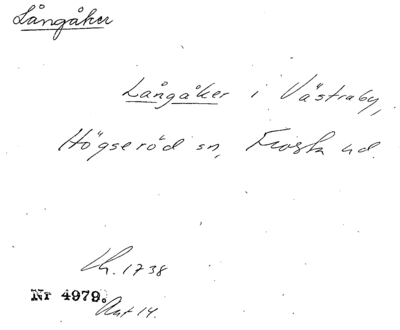 Långåker
Långåker i Västraby,
Högseröd sn, Frosta hd.
Lh. 1738
Nr 4979.
Akt 14.